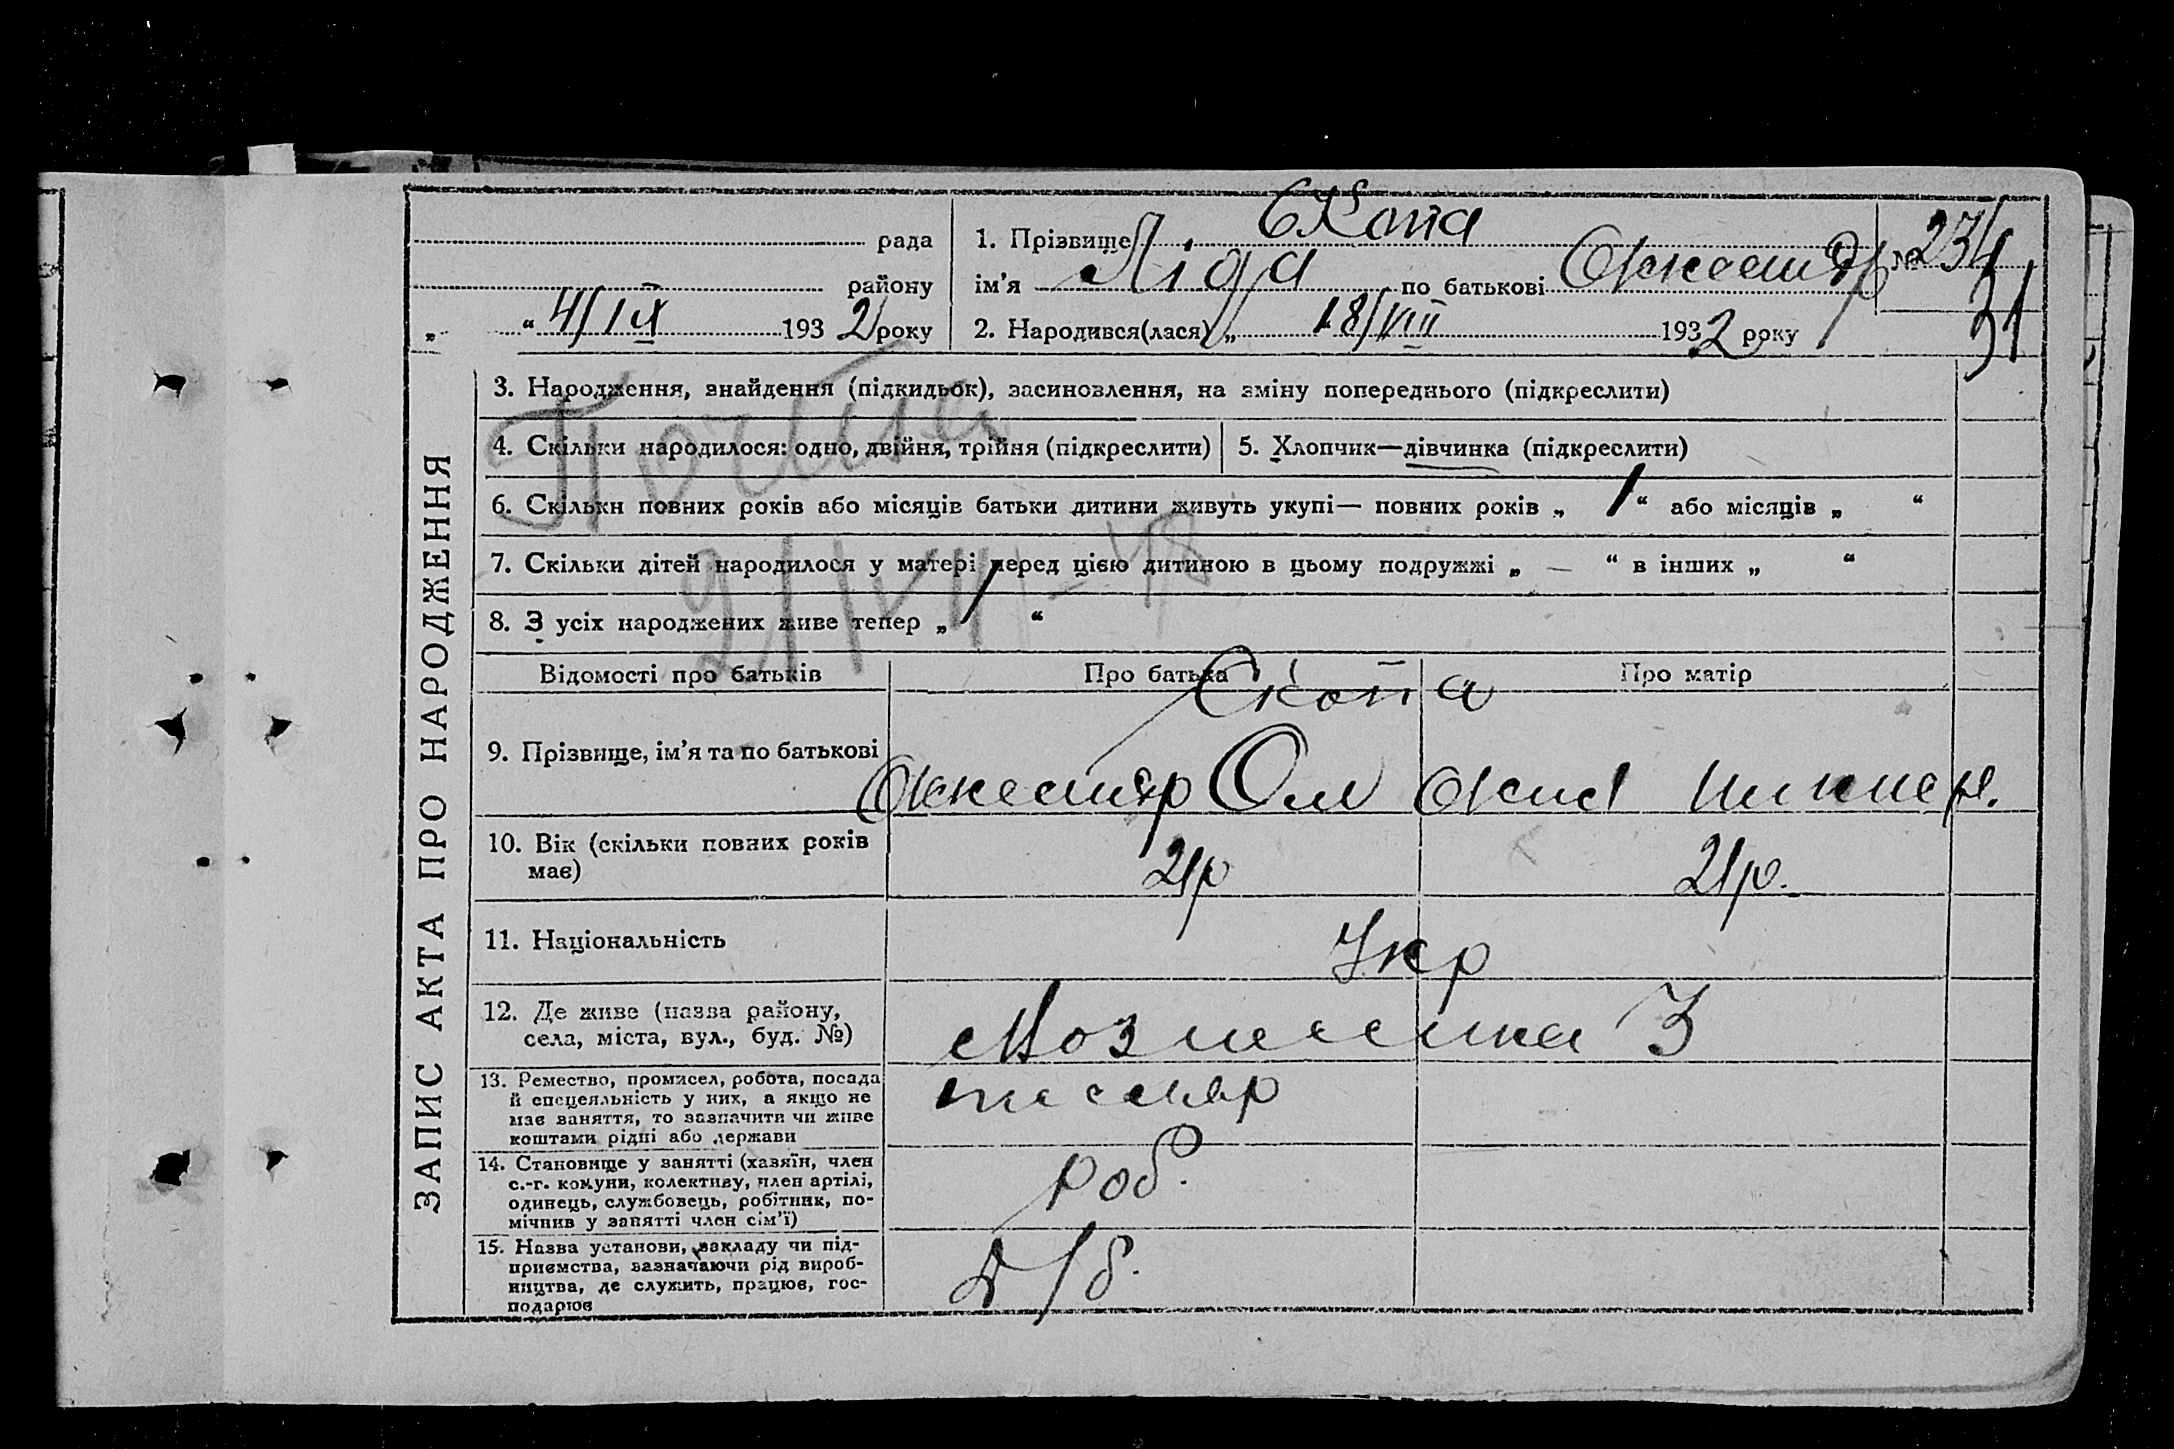 рада
району
„ “ 4/ІX 1932 року
1. Прізвище Скопа
ім'я Ліда по батькові
№ 234
31
2. Народився(лася) „ 18/VIII 1932 року
ЗАПИС АКТА ПРО НАРОДЖЕННЯ
3. Народження, знайдення (підкидьок), засиновлення, на зміну попереднього (підкреслити)
4. Скільки народилося: одно, двійня, трійня (підкреслити)
5. Хлопчик—дівчинка (підкреслити)
6. Скільки повних років або місяців батьки дитини живуть укупі— повних років „ 1 “ або місяців „ “
7. Скільки дітей народилося у матері перед цією дитиною в цьому подружжі „ — “ в інших „ “
8. З усіх народжених живе тепер „ 1 “
Відомості про батьків
Про батька
Про матір
Скопа
9. Прізвище, ім'я та по батькові
10. Вік (скільки повних років
має)
21р
21р.
11. Національність
Укр
12. Де живе (назва району,
села, міста, вул., буд. №)
3
13. Ремество, промисел, робота, посада
й спецеяльність у них, а якщо не
має заняття, то зазначити чи живе
коштами рідні або держави
тесляр
14. Становище у занятті (хазяїн, член
с.-г. комуни, колективу, член артілі,
одинець, службовець, робітник, по-
мічник у занятті член сім'ї)
роб.
15. Назва установи, закладу чи під-
приємства, зазначаючи рід вироб-
ництва, де служить, працює, гос-
подарює